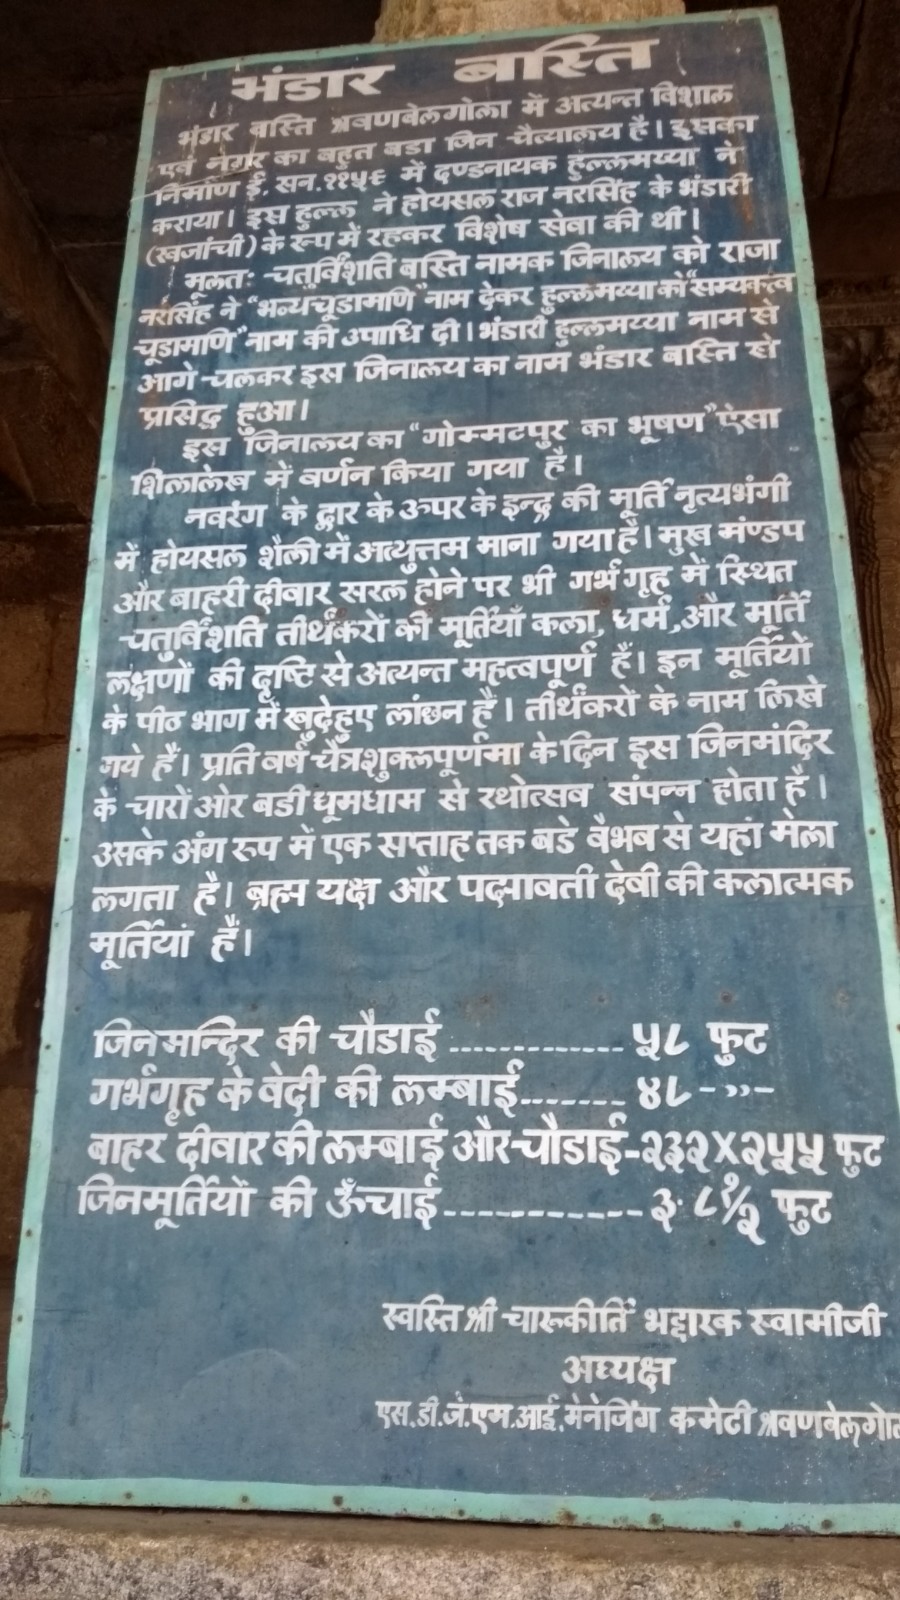 भंडार बस्ति
भंडार बस्ति श्रवणबेलगोला में अत्यन्त विशाल
एवं नगर का बहुत बडा जिन चैत्यालय है। इसका
निर्माण ई. सन.११५९ में दण्डनायक हुल्लमय्या ने
कराया। इस हुल्ल ने होयसल राज नरसिंह के भंडारी
(खजांची) के रुप में रहकर विशेष सेवा की थी।
मूलतः चतुर्विंशति बस्ति नामक जिनालय को राजा
नरसिंह ने "भव्यचूडामणि" नाम देकर हुल्लमय्या को "सम्यक्त्व
चूडामणि" नाम की उपाधि दी। भंडारी हुल्लमय्या नाम से
आगे चलकर इस जिनालय का नाम भंडार बस्ति से
प्रसिद्ध हुआ।
इस जिनालय का "गोम्मटपुर का भूषण" ऐसा
शिलालेख में वर्णन किया गया है।
नवरंग के द्वार के ऊपर के इन्द्र की मूर्ति नृत्यभंगी
में होयसल शैली में अत्युत्तम माना गया है। मुख मंण्डप
और बाहरी दीवार सरल होने पर भी गर्भगृह में स्थित
चतुर्विंशति तीर्थंकरों की मूर्तियाँ कला, धर्म, और मूर्ति
लक्षणों की दृष्टि से अत्यन्त महत्वपूर्ण हैं। इन मूर्तियों
के पीठ भाग में खुदेहुए लांछन है। तीर्थंकरों के नाम लिखे
गये हैं। प्रति वर्ष चैत्रशुक्लपूर्णमा के दिन इस जिनमंदिर
के चारों ओर बडी धूमधाम से रथोत्सव संपन्न होता है।
उसके अंग रुप में एक सप्ताह तक बडे वैभव से यहां मेला
लगता है। ब्रह्म यक्ष और पद्मावती देवी की कलात्मक
मूर्तियां हैं।
जिनमन्दिर की चौडाई ............. ५८ फुट
गर्भगृह के वेदी की लम्बाई....... ४८ -,,-
बाहर दीवार की लम्बाई और चौडाई-२३२X२५५ फुट
जिनमूर्तियों की ऊँचाई........... ३.८१/२ फुट
स्वस्ति श्री चारुकीर्ति भट्टारक स्वामीजी
अध्यक्ष
एस.डी.जे.एम.आई.मेनेजिंग कमेटी